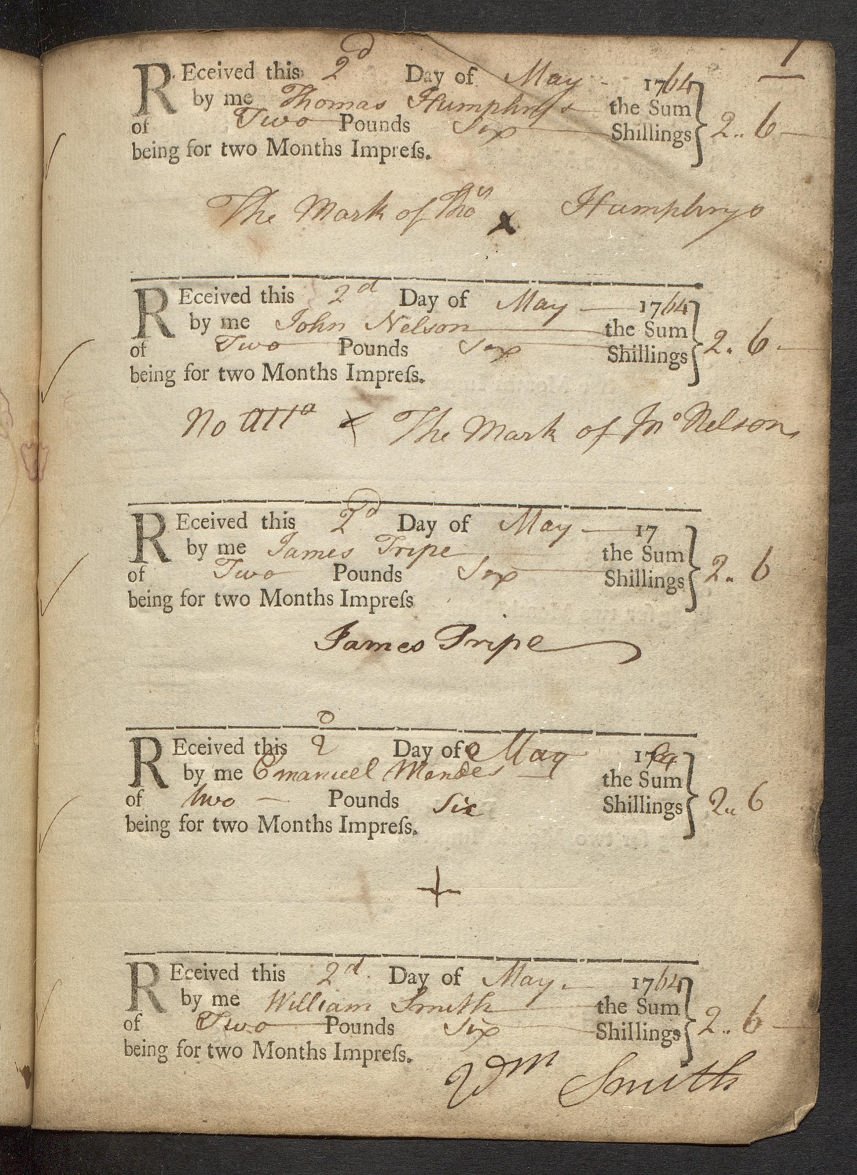 1
REceived this 2d Day of May 1764
by me Thomas Humphrys the Sum
of Two Pounds Six Shillings } 2 .. 6
being for two Months Impreſs.
The Mark of Thos x Humphrys
REceived this 2d Day of May 1764
by me John Nelson the Sum
of Two Pounds Six Shillings } 2 .. 6
being for two Months Impreſs.
No x The Mark of Jno Nelson
REceived this 2d Day of May 17
by me James Tripe the Sum
of Two Pounds Six Shillings } 2 .. 6
being for two Months Impreſs
James Tripe
REceived this 2 Day of May 1764
by me Emanuel Mendes the Sum
of two Pounds Six Shillings } 2 .. 6
being for two Months Impreſs.
+
REceived this 2d Day of May 1764
by me William Smith the Sum
of Two Pounds Six Shillings } 2 .. 6
being for two Months Impreſs.
Wm Smith